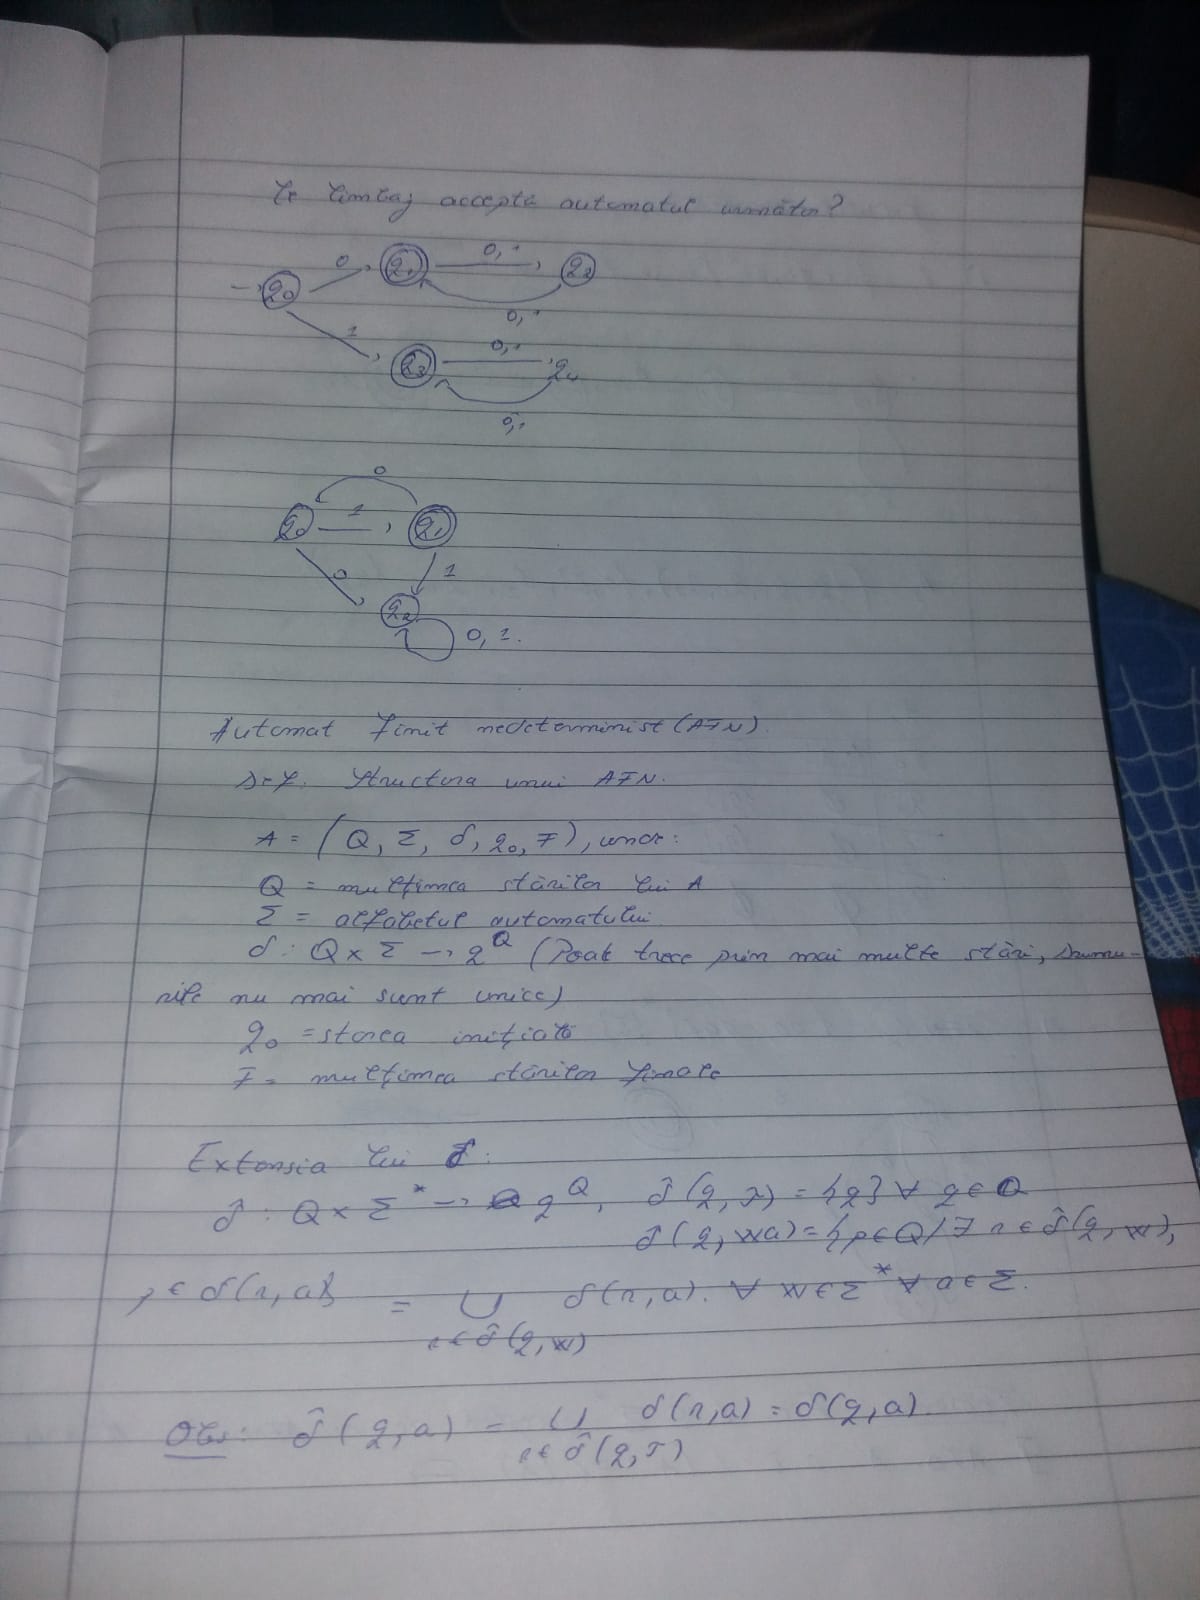 Ce limbaj acceptă automatul următor?
0 q1 0, 1 q2
q0
0, 1
1 0, 1
q3 q4
0, 1
0
q0 1 q1
0 1
q2
0, 1.
Automat finit nedeterminist (AFN)
Def. Structura unui AFN.
A = (Q, Σ, δ, q0, F), unde:
Q = mulțimea stărilor lui A
Σ = alfabetul automatului
δ : Q x Σ → 2^Q (Poate trece prin mai multe stări, drumu-
rile nu mai sunt unice)
q0 = starea inițială
F = mulțimea stărilor finale
Extensia lui δ:
δ̂ : Q x Σ* → 2^Q, δ̂(q, λ) = {q} ∀ q ∈ Q
δ̂(q, wa) = {p ∈ Q / ∃ r ∈ δ̂(q, w),
p ∈ δ(r, a)} = ∪ δ(r, a). ∀ w ∈ Σ* ∀ a ∈ Σ.
r ∈ δ̂(q, w)
Obs: δ̂(q, a) = ∪ δ(r, a) = δ(q, a)
r ∈ δ̂(q, λ)